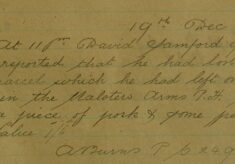 19th Dec
At 11 pm David Samford
reported that he had lost
parcel which he had left on
in the Malsters Arms P.H.
a piece of pork & some
value 1/
A Burns P.C 249